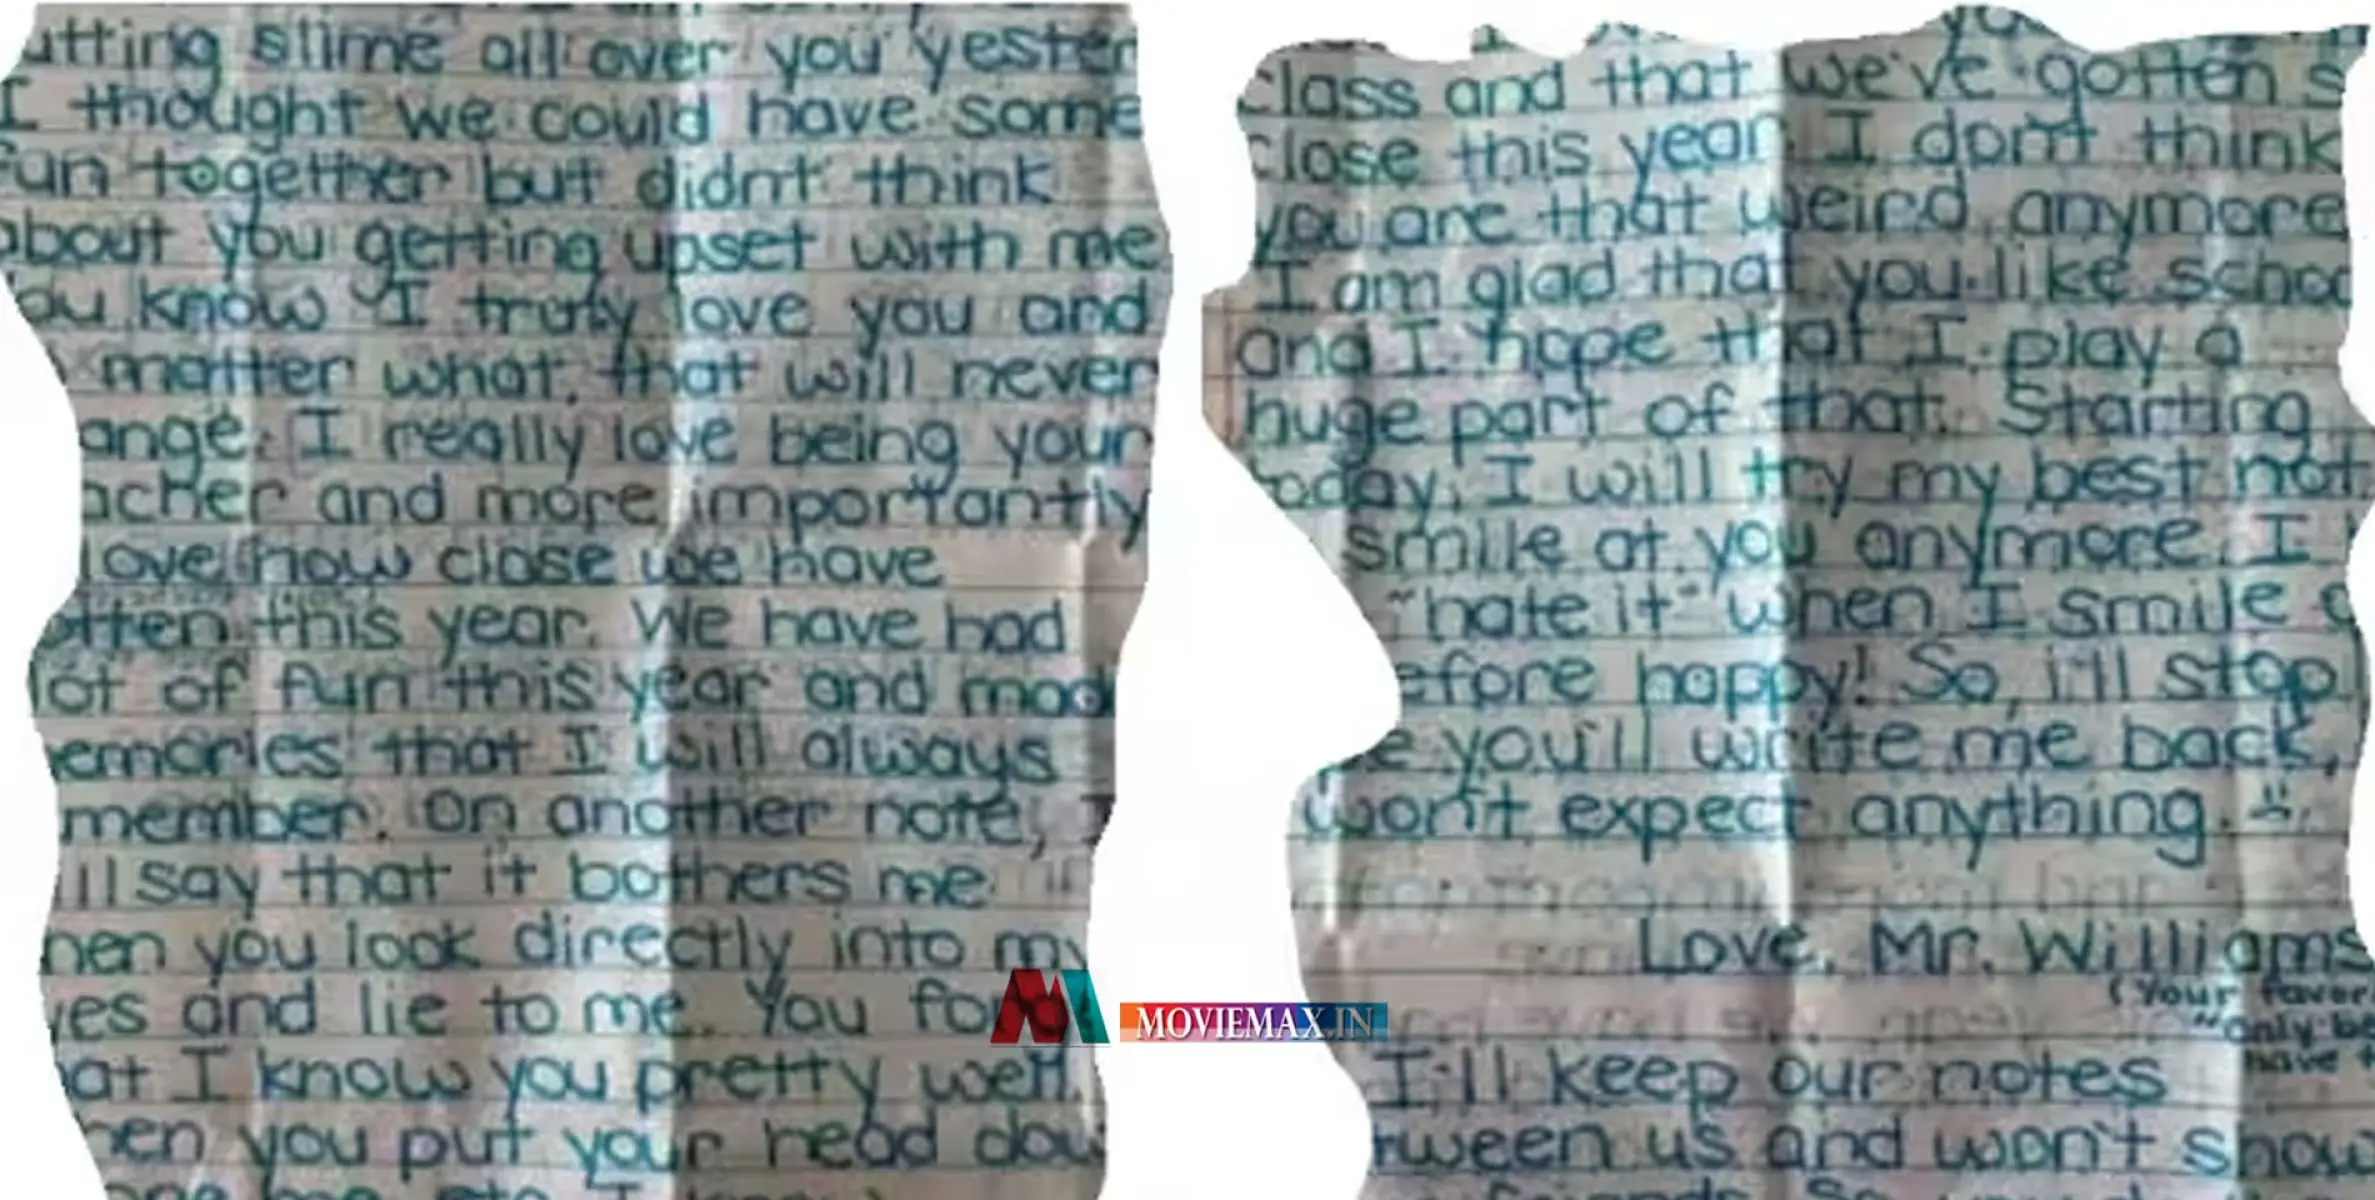 utting slime all over you yester
I thought we could have some
fun together but didnt think
about you getting upset with me
ou know I truly love you and
matter what, that will never
ange. I really love being your
acher and more importantly
love how close we have
otten this year. We have had
lot of fun this year and mad
emories that I will always
member. On another note, I
ill say that it bothers me
hen you look directly into my
yes and lie to me. You for
hat I know you pretty well.
hen you put your head dow
class and that we've gotten s
close this year. I don't think
you are that weird anymore
I am glad that you like schoo
and I hope that I play a
huge part of that. Starting
today, I will try my best not
smile at you anymore. I
"hate it" when I smile a
efore happy! So, i'll stop
e you'll write me back,
won't expect anything.
Love, Mr. Williams
(Your favor
"only be
have t
I'll keep our notes
tween us and won't show
MOVIEMAX.IN